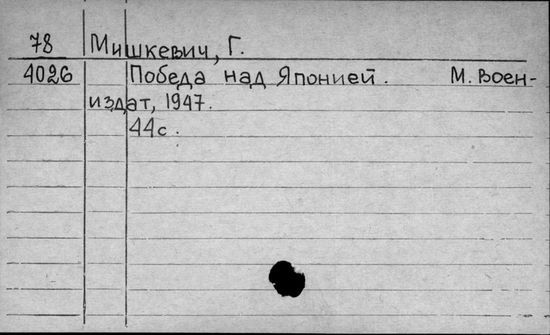 78 Мишкевич, Г.
4026 Победа над Японией. М. Воен-
издат, 1947.
44с.